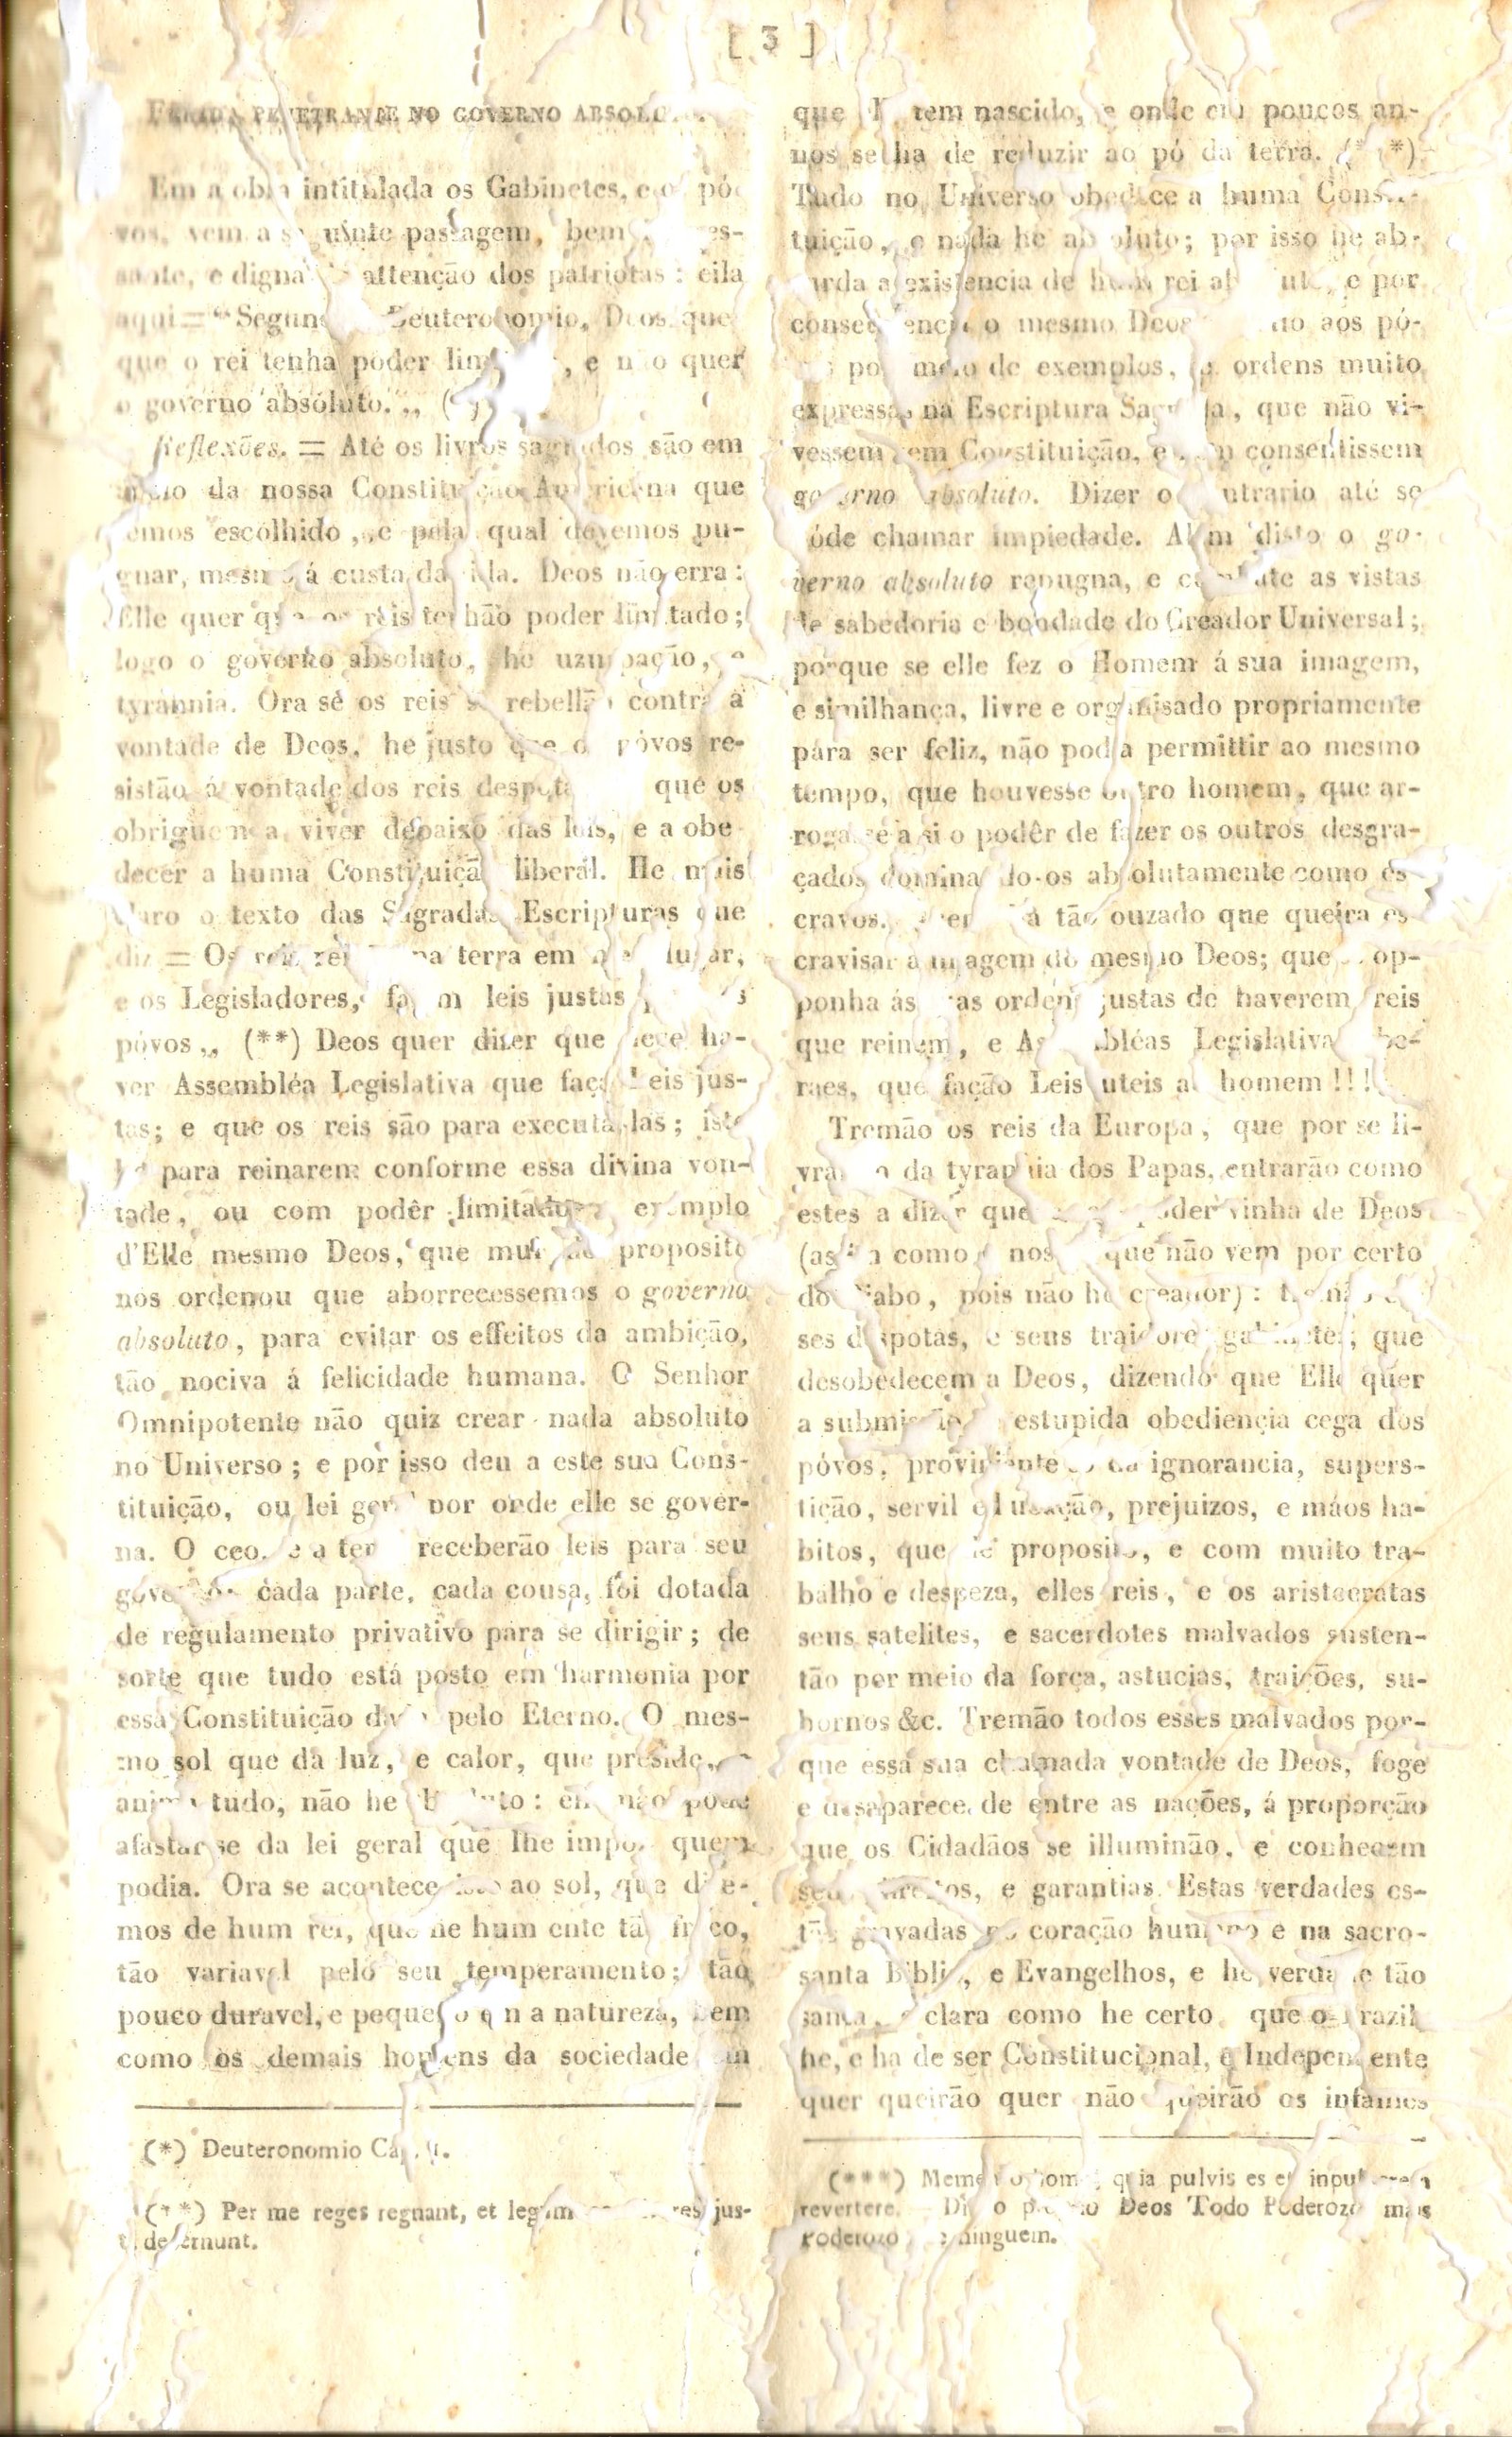 [ 3 ]
PENETRANTE NO GOVERNO
Em a obra intitulada os Gabinetes, e os
vos, vem a seguinte passagem, bem
sante, e digna attenção dos patriotas: eila
aqui = “ Segundo Deuteronomio, Deos que
que o rei tenha poder , e não quer
o governo absoluto. ,, (*)
Reflexões. = Até os livros sagrados são em
da nossa Constituição Americana que
temos escolhido, e pela qual devemos pu-
gnar, mesmo á custa da vida. Deos não erra:
Elle quer que os reis tenhão poder limitado;
logo o governo absoluto, he uzurpação, e
tyrannia. Ora se os reis se rebellão contra a
vontade de Deos, he justo que os póvos re-
sistão á vontade dos reis despotas que os
obriguem a viver debaixo das leis, e a obe
decer a huma Constituição liberal. He mais
claro o texto das Sagradas Escripturas que
diz = Os reis na terra em meu lugar,
e os Legisladores, fação leis justas
póvos ,, (**) Deos quer dizer que deve ha-
ver Assembléa Legislativa que faça Leis jus-
tas; e que os reis são para executa-las; isto
he para reinarem conforme essa divina von-
tade, ou com podêr limitado exemplo
d'Elle mesmo Deos, que muito de proposito
nos ordenou que aborrecessemos o governo
absoluto, para evitar os effeitos da ambição,
tão nociva á felicidade humana. O Senhor
Omnipotente não quiz crear nada absoluto
no Universo; e por isso deu a este sua Cons-
tituição, ou lei geral por onde elle se gover-
na. O ceo, e a terra receberão leis para seu
governo: cada parte, cada cousa, foi dotada
de regulamento privativo para se dirigir; de
sorte que tudo está posto em harmonia por
essa Constituição dada pelo Eterno. O mes-
mo sol que dá luz, e calor, que preside, e
anima tudo, não he absoluto: elle não pode
afastar se da lei geral que lhe impoz quem
podia. Ora se acontece isto ao sol, que dire-
mos de hum rei, que he hum ente tão fraco,
tão variavel pelo seu temperamento; tão
pouco duravel, e pequeno em a natureza, bem
como os demais homens da sociedade em
(*) Deuteronomio Cap.
(**) Per me reges regnant, et legum jus-
ta decernunt.
que tem nascido, e onde em poucos an-
nos se ha de reduzir ao pó da terra. (***)
Tudo no Universo obedece a huma Consti-
tuição, e nada he absoluto; por isso he ab-
surda a existencia de hum rei absoluto, e por
consequencia o mesmo Deos aos pó-
vos por meio de exemplos, e ordens muito
expressas na Escriptura Sagrada, que não vi-
vessem sem Constituição, e nem consentissem
governo absoluto. Dizer o contrario até se
póde chamar impiedade. Além disto o go-
verno absoluto repugna, e combate as vistas
de sabedoria e bondade do Creador Universal;
porque se elle fez o Homem á sua imagem,
e similhança, livre e organisado propriamente
para ser feliz, não podia permittir ao mesmo
tempo, que houvesse outro homem, que ar-
rogasse a si o podêr de fazer os outros desgra-
çados dominando-os absolutamente como es
cravos. tão ouzado que queira es
cravisar a imagem do mesmo Deos; que se op-
ponha ás suas ordens justas de haverem reis
que reinem, e Assembléas Legislativas libe-
raes, que fação Leis uteis ao homem!!!
Tremão os reis da Europa, que por se li-
vrarem da tyrannia dos Papas, entrarão como
estes a dizer que poder vinha de Deos
(assim como nos que não vem por certo
do Diabo, pois não he creador): tremão es-
ses despotas, e seus traidores gabinetes, que
desobedecem a Deos, dizendo que Elle quer
a submissão estupida obediencia cega dos
póvos, da ignorancia, supers-
tição, servil educação, prejuizos, e máos ha-
bitos, que de proposito, e com muito tra-
balho e despeza, elles reis, e os aristocratas
seus satelites, e sacerdotes malvados susten-
tão por meio da força, astucias, traições, su-
bornos &c. Tremão todos esses malvados por-
que essa sua chamada vontade de Deos, foge
e desaparece de entre as nações, á proporção
que os Cidadãos se illuminão, e conhecem
seus direitos, e garantias. Estas verdades es-
tão gravadas no coração humano e na sacro-
santa Biblia, e Evangelhos, e he verdade tão
santa, e clara como he certo que o Brazil
he, e ha de ser Constitucional, e Independente
quer queirão quer não queirão os infames
(***) Memento homo, quia pulvis es et in pulverem
revertere. Diz o proprio Deos Todo Poderozo mais
Poderozo ninguem.